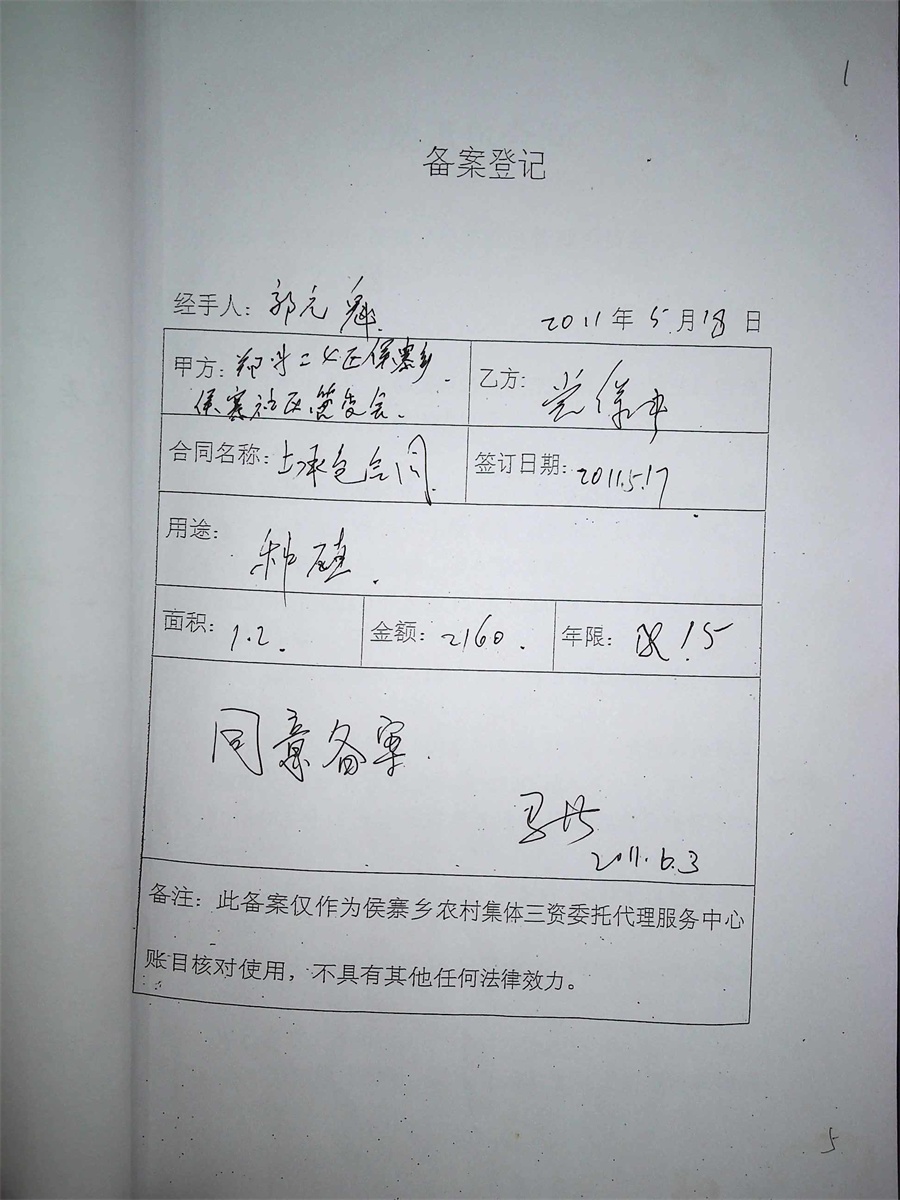 1
备案登记
经手人：郭元魁 2011年5月18日
甲方：郑州二七区侯寨乡
侯寨社区管委会.
乙方：党保
合同名称：土承包合同.
签订日期：2011.5.17
用途：
种植.
面积：1.2.
金额：2160.
年限：15
同意备案.
2011.6.3
备注：此备案仅作为侯寨乡农村集体三资委托代理服务中心
账目核对使用，不具有其他任何法律效力。
5